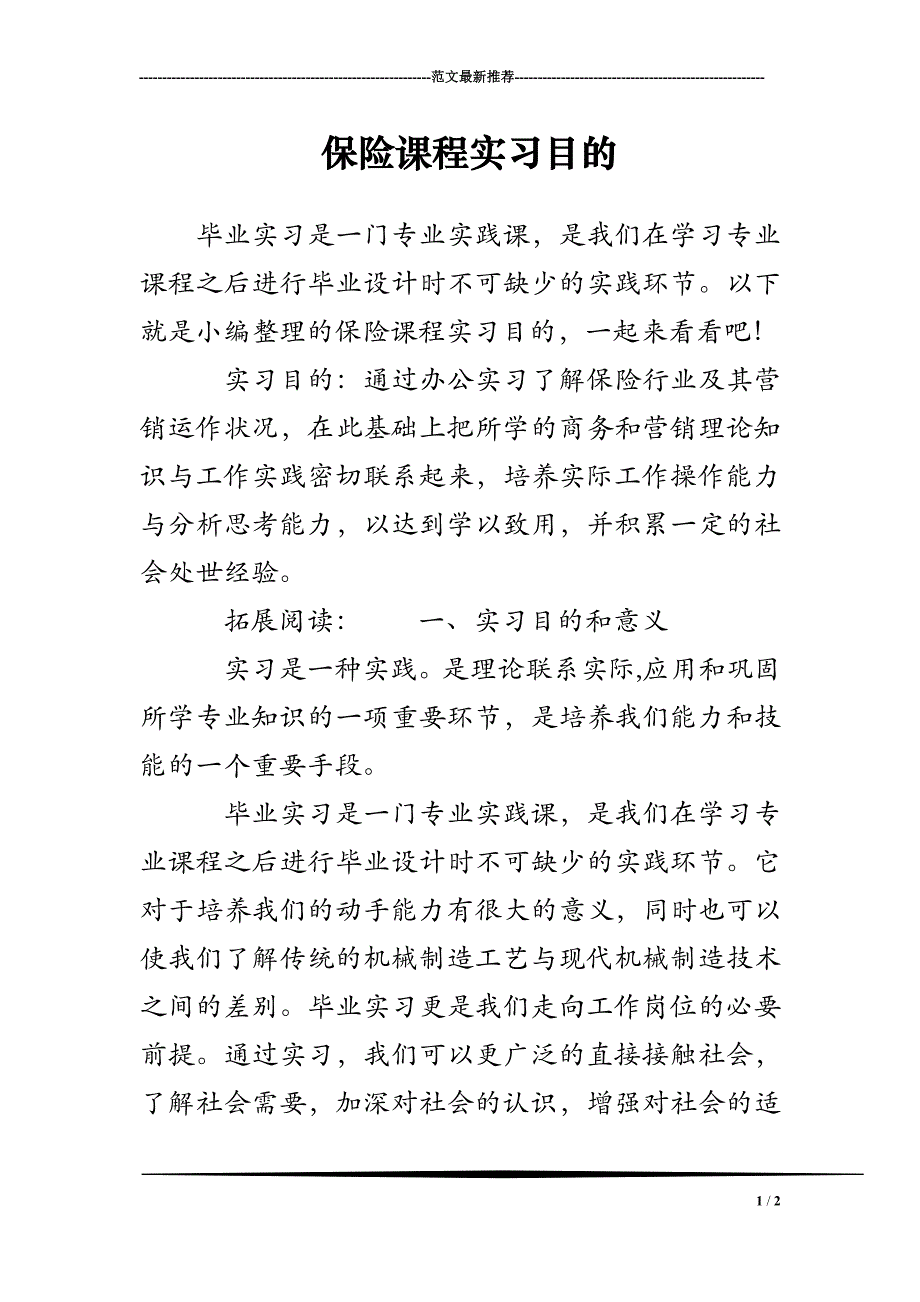 ---------------------------------------------------------------范文最新推荐------------------------------------------------------
保险课程实习目的
毕业实习是一门专业实践课，是我们在学习专业
课程之后进行毕业设计时不可缺少的实践环节。以下
就是小编整理的保险课程实习目的，一起来看看吧！
实习目的：通过办公实习了解保险行业及其营
销运作状况，在此基础上把所学的商务和营销理论知
识与工作实践密切联系起来，培养实际工作操作能力
与分析思考能力，以达到学以致用，并积累一定的社
会处世经验。
拓展阅读： 一、实习目的和意义
实习是一种实践。是理论联系实际,应用和巩固
所学专业知识的一项重要环节，是培养我们能力和技
能的一个重要手段。
毕业实习是一门专业实践课，是我们在学习专
业课程之后进行毕业设计时不可缺少的实践环节。它
对于培养我们的动手能力有很大的意义，同时也可以
使我们了解传统的机械制造工艺与现代机械制造技术
之间的差别。毕业实习更是我们走向工作岗位的必要
前提。通过实习，我们可以更广泛的直接接触社会，
了解社会需要，加深对社会的认识，增强对社会的适
1 / 2